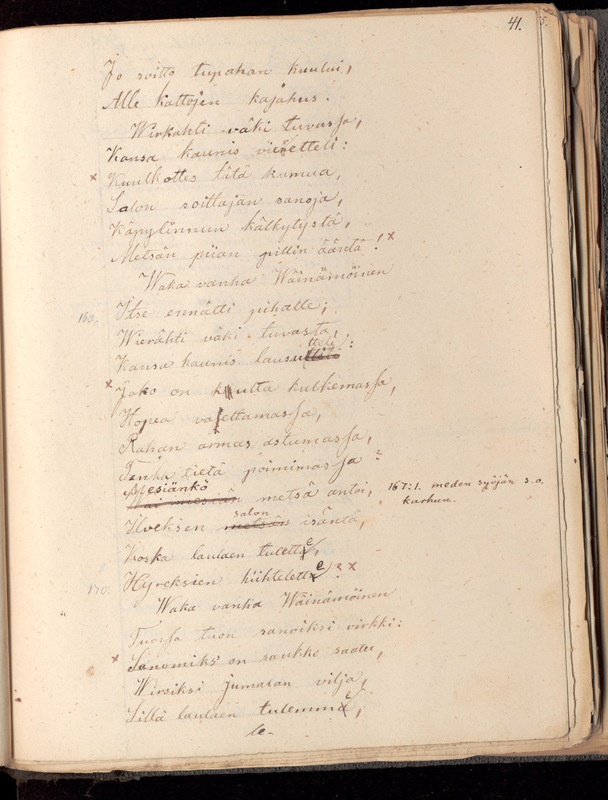 41.
Jo soitto tupahan kuului,
Alle kattojen kajahus.
Wirkahti väki tuvassa,
Kansa kaunis vieretteli:
× Kuulkottes tätä kumua,
Salon soittajan sanoja,
Käpylinnun kälkytystä,
Metsän piian pillin ääntä! ×
Waka vanha Wäinämöinen
160. Itse ennätti pihalle;
Wierähti väki tuvasta,
Kansa kaunis lausutteli:
× Joko on kulta kulkemassa,
Hopea vaeltamassa,
Rahan armas astumassa,
Tenka tietä poimimassa?
Mesiänkö metsä antoi, 167:1. meden syöjän s.o.
karhun.
Ilveksen salon isäntä,
Koska laulaen tulette,
170. Hyreksien hiihtelette? ×
Waka vanha Wäinämöinen
Tuossa tuon sanoiksi virkki:
× Sanomiks on saukko saatu,
Wirsiksi jumalan vilja,
Sillä laulaen tulemme,